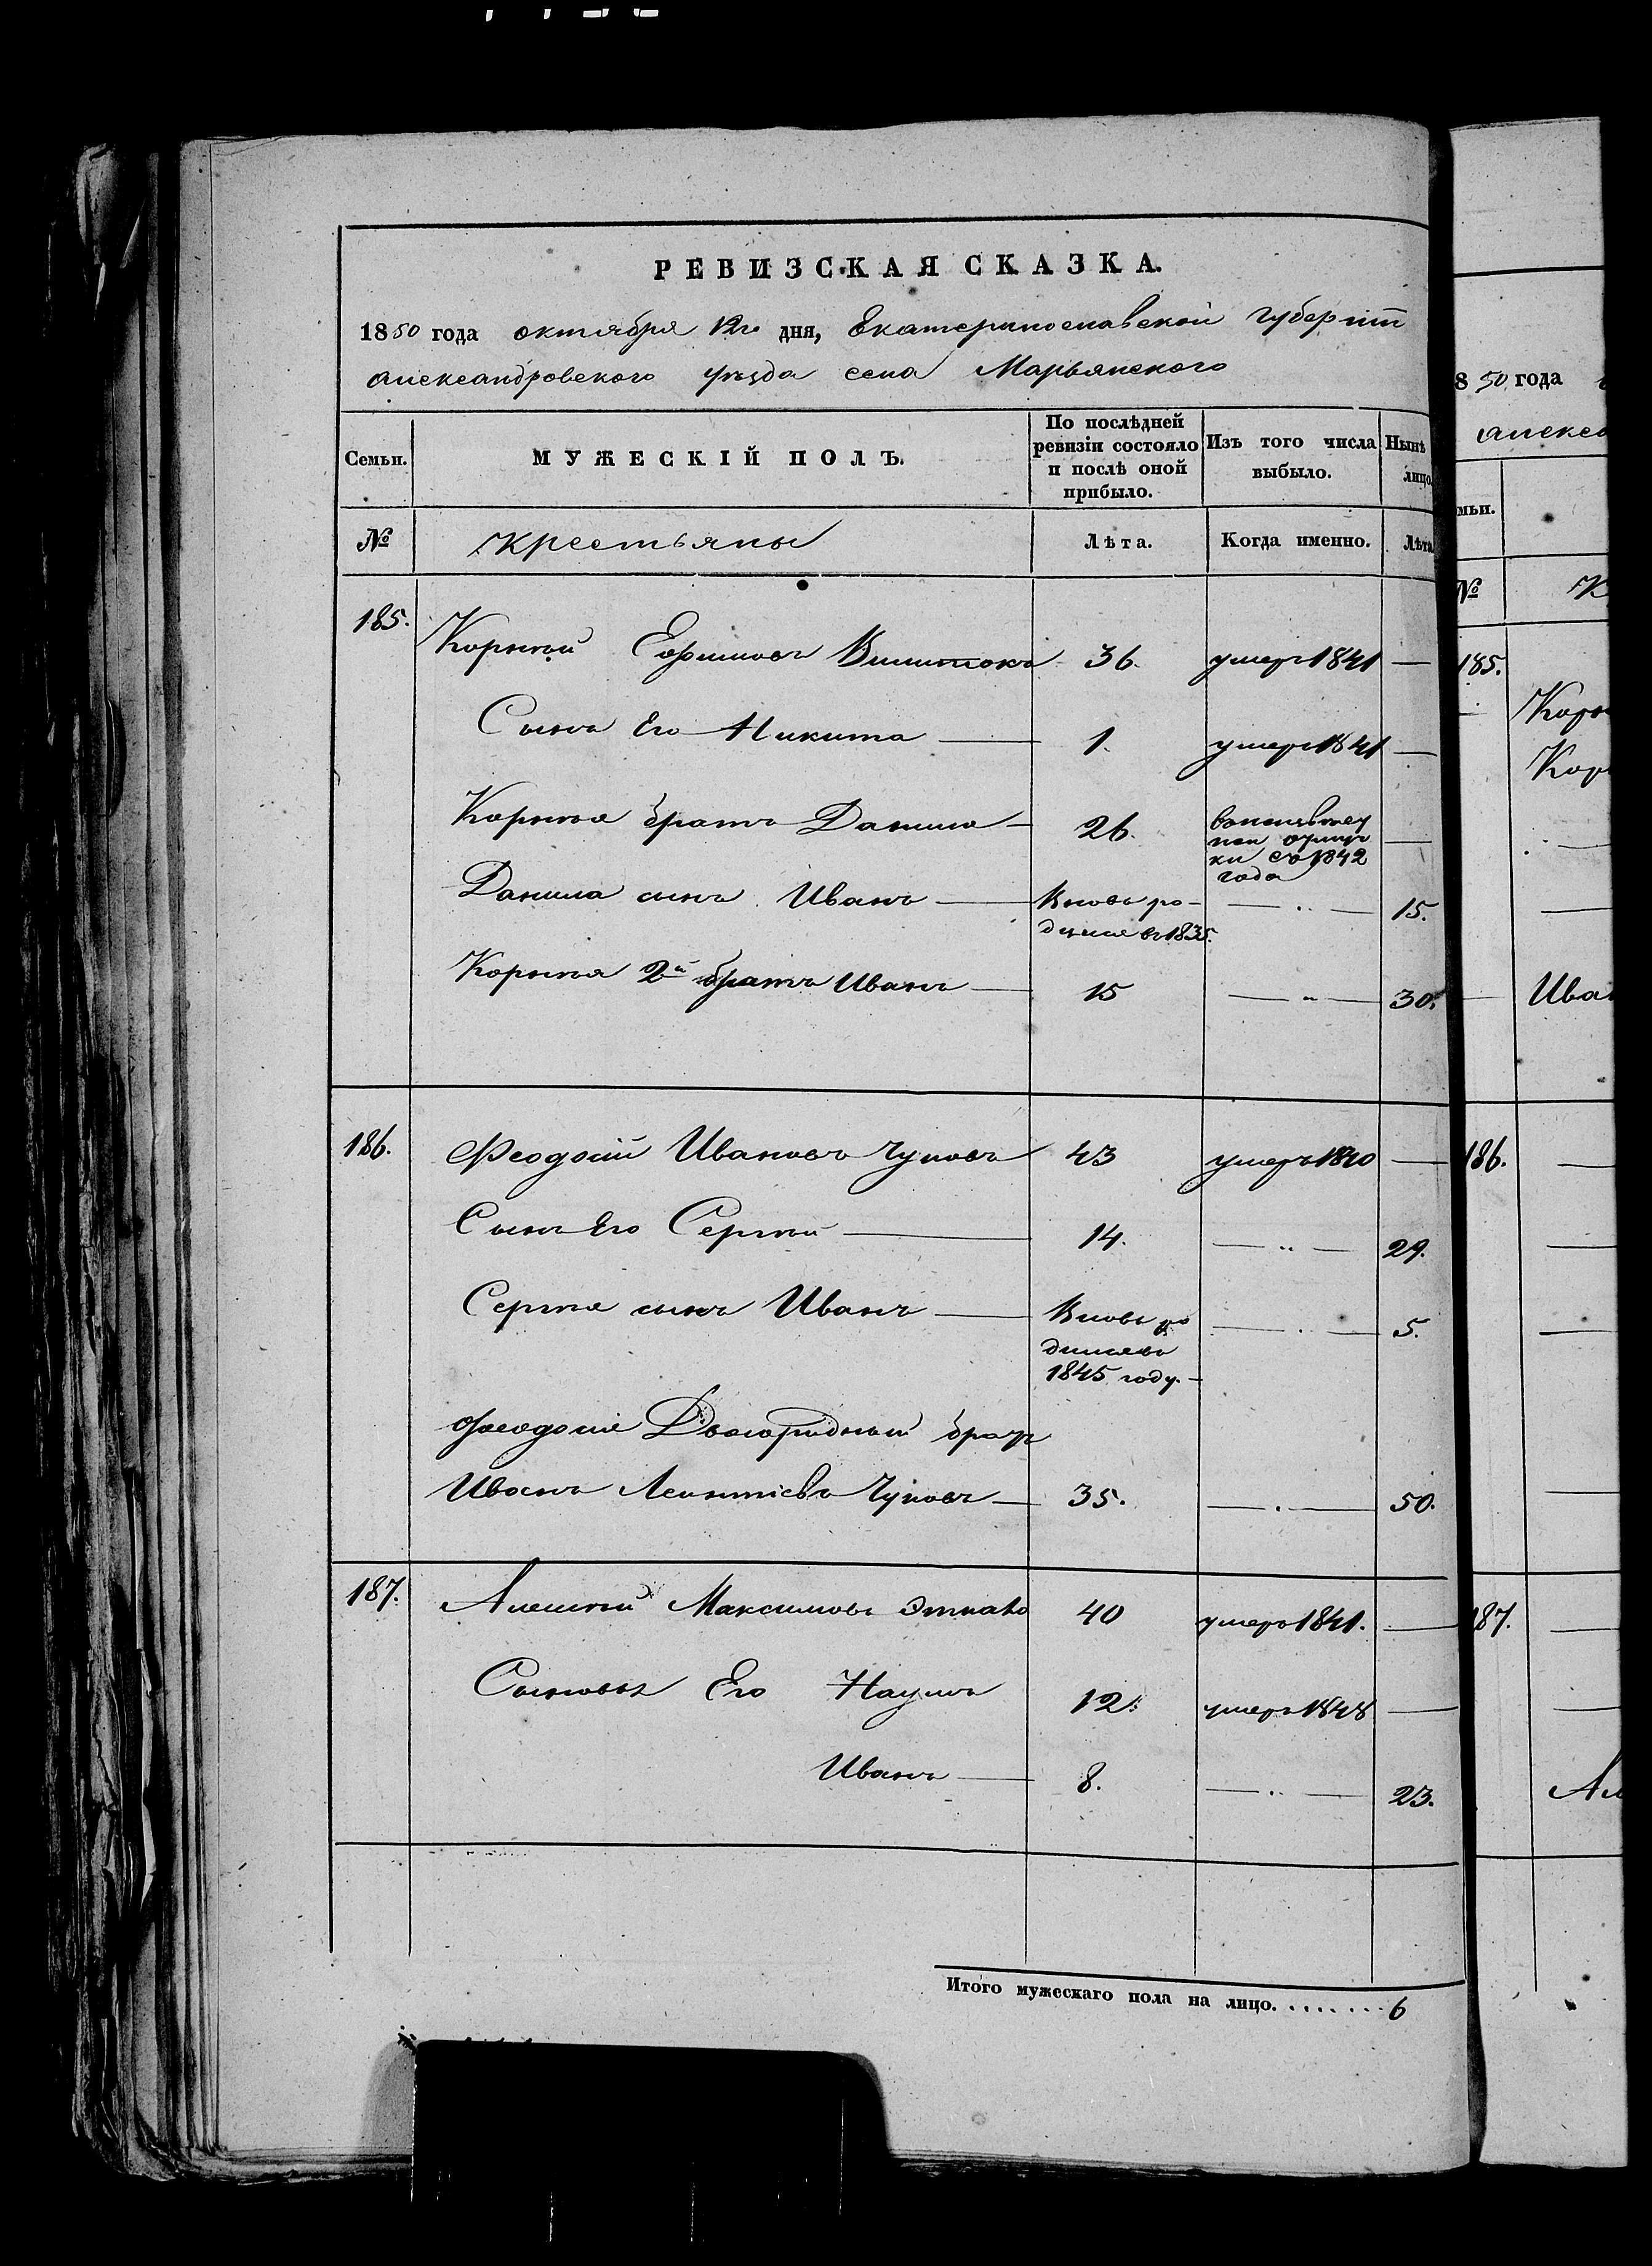 РЕВИЗСКАЯ СКАЗКА.
1850 года октября 12го дня, Екатеринославской губерніи
Александровского уѣзда села Марьянского
Семьи.
МУЖЕСКІЙ ПОЛЪ.
По послѣдней ревизіи состояло и послѣ оной прибыло.
Изъ того числа выбыло.
Нынѣ
лицо.
№
Крестьяны
Лѣта.
Когда именно.
Лѣта
185. Корнѣй Ефимовъ 36. умеръ 1841 —
Сынъ Его Никита — 1. умеръ 1841 —
Корнѣя братъ Данила — 26. года съ 1842 —
Данила сынъ Иванъ — Вновь ро-
дился въ 1835. — 15.
Корнѣя 2й братъ Иванъ — 15 — " — 30.
186. Феодосій Ивановъ Чуповъ 43 умеръ 1840 —
Сынъ Его Сергѣй — 14. — " — 29.
Сергѣя сынъ Иванъ — Вновь ро
дился въ
1845 году. — — 5.
Феодосія Двоюродный братъ
Иванъ Леонтіевъ Чуповъ — 35. — 50.
187. Алексѣй Максимовъ 40 умеръ 1841. —
Сыновья Его Наумъ 12. умеръ 1848 —
Иванъ — 8. — " — 23.
Итого мужескаго пола на лицо. . . . . . . . 6
8 50 года
Алекса
мьи.
№
К
185.
Корн
Кор
Иван
186.
187.
Ал